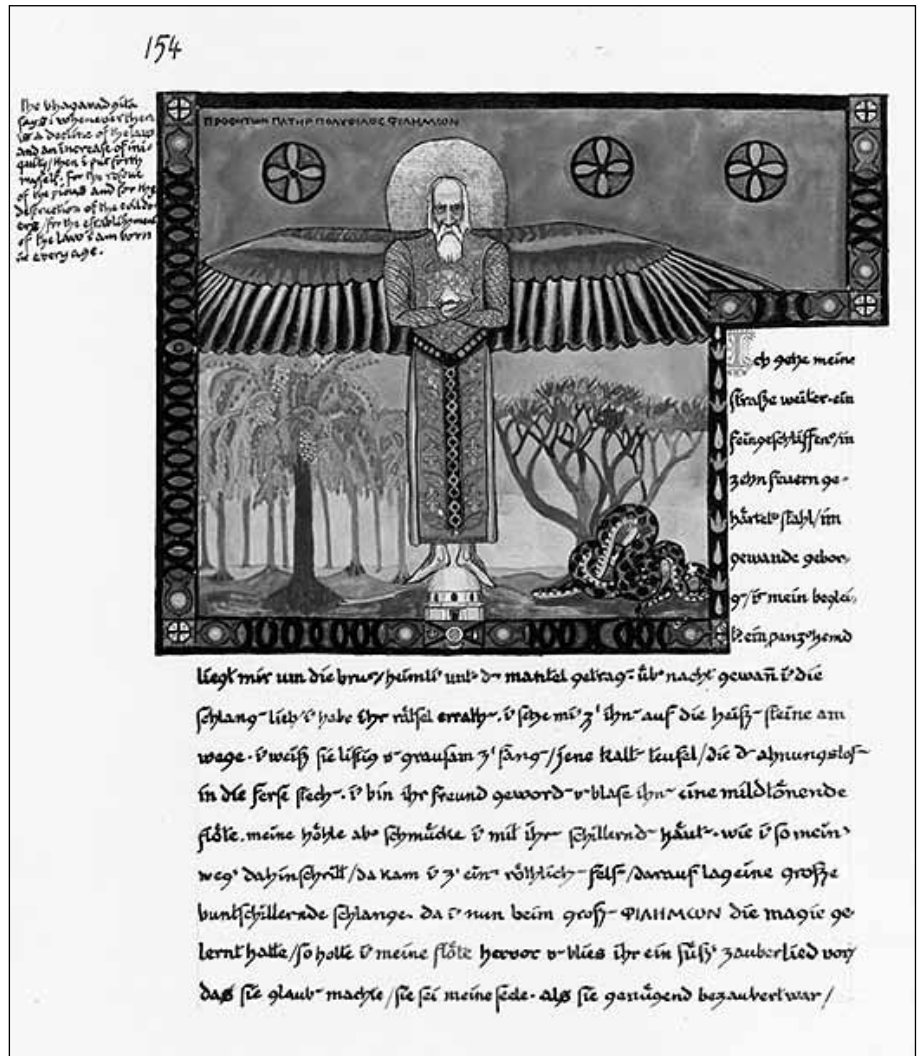 154
the bhagavadgita
says: whenever there
is a decline of the law
and an increase of ini-
quity / then i put forth
myself. for the rescue
of the pious and for the
destruction of the evildo-
ers / for the establishment
of the law i am born
in every age.
ΠΡΟΦΗΤΩΝ ΠΑΤΗΡ ΠΟΛΥΦΙΛΟC ΦΙΛΗΜΩΝ
Ich gehe meine
straße weiter. ein
feingeschliffen' / in
zehn feuern ge-
härtet' stahl / im
gewande gebor-
g' / i' mein beglei-
t'. ein panz' hemd
liegt mir um die brus' / heimli' unt' d- mantel getrag-. üb' nacht gewañ i' die
schlang- lieb / i' habe ihr rätsel errath-. i' setze mi' z' ihn- auf die heiß- steine am
wege. i' weiß sie listig v- grausam z' fang- / jene kalt- teufel / die d- ahnungslos-
in die ferse stech-. i' bin ihr freund geword- v- blase ihn- eine mildtönende
flöte. meine höhle ab' schmücke i' mit ihr- schillernd- häut-. wie i' so mein'
weg' dahinschritt / da kam i' z' ein- röthlich- fels- / darauf lag eine große
buntschillernde schlange. da i' nun beim groß- ΦΙΛΗΜΩΝ die magie ge-
lernt hatte / so holte i' meine flöte hervor v- blies ihr ein süß' zauberlied vor /
das sie glaub- machte / sie sei meine seele. als sie genügend bezaubert war /